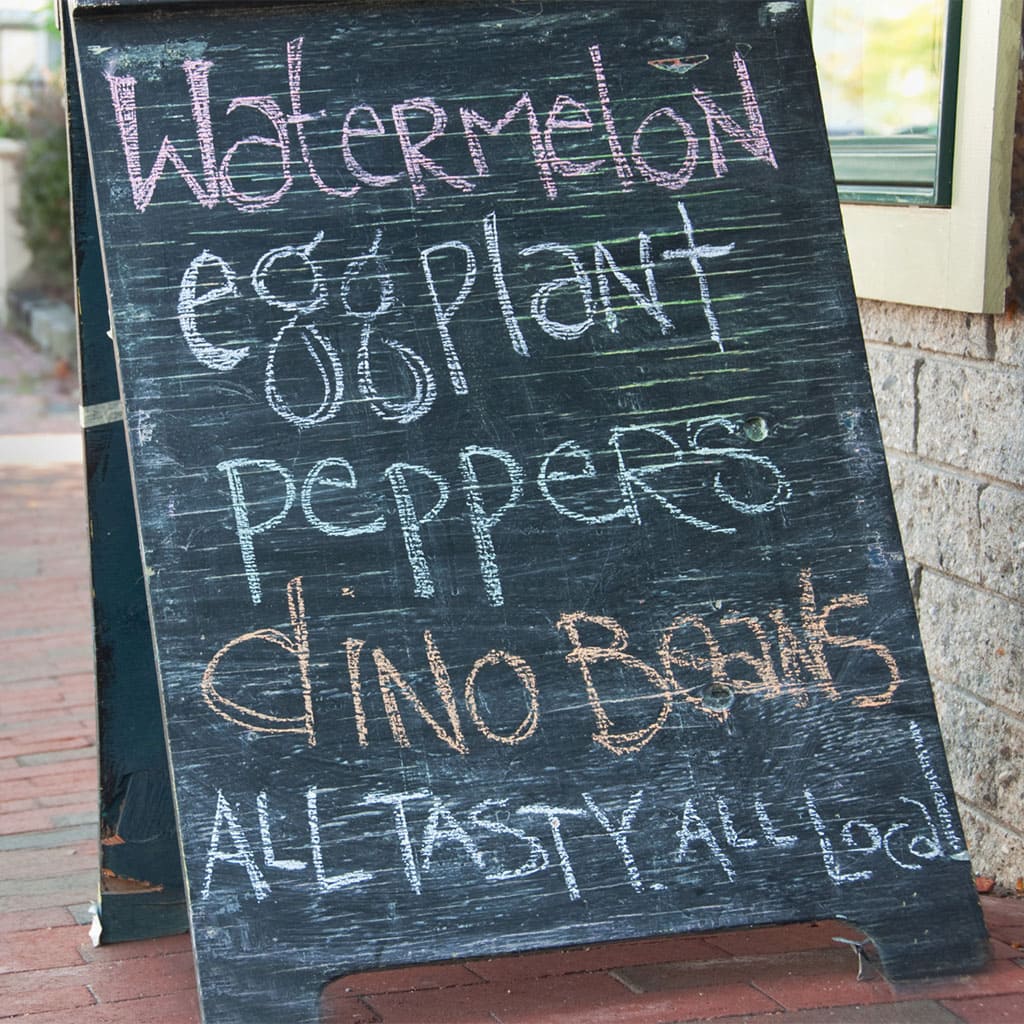 Watermelon
eggplant
peppers
dino Beans
ALL TASTY. ALL Local